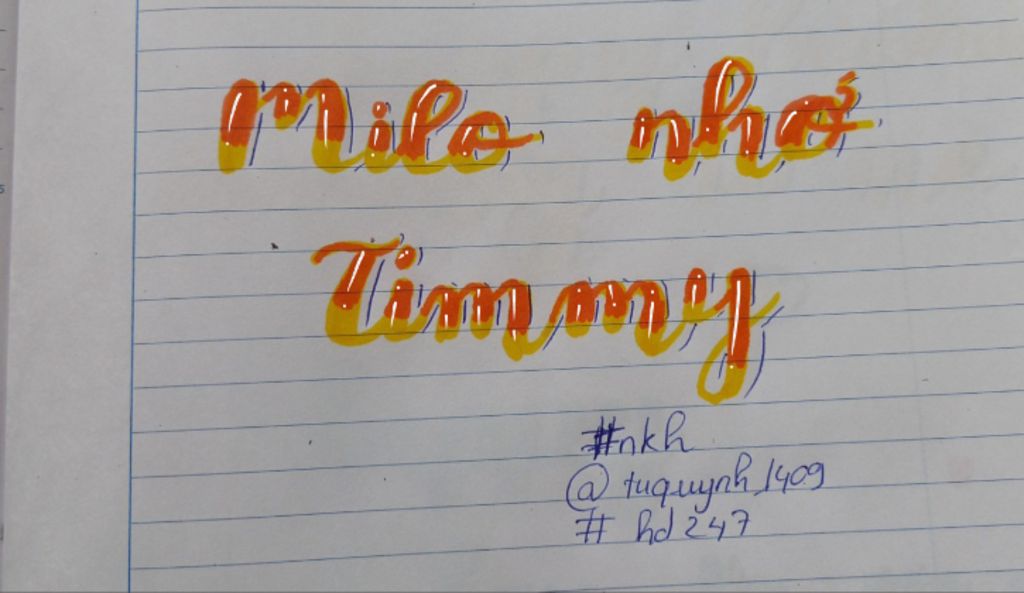 Milo nhớ
Timmy
#nkh
@tuquynh_1409
# hd247